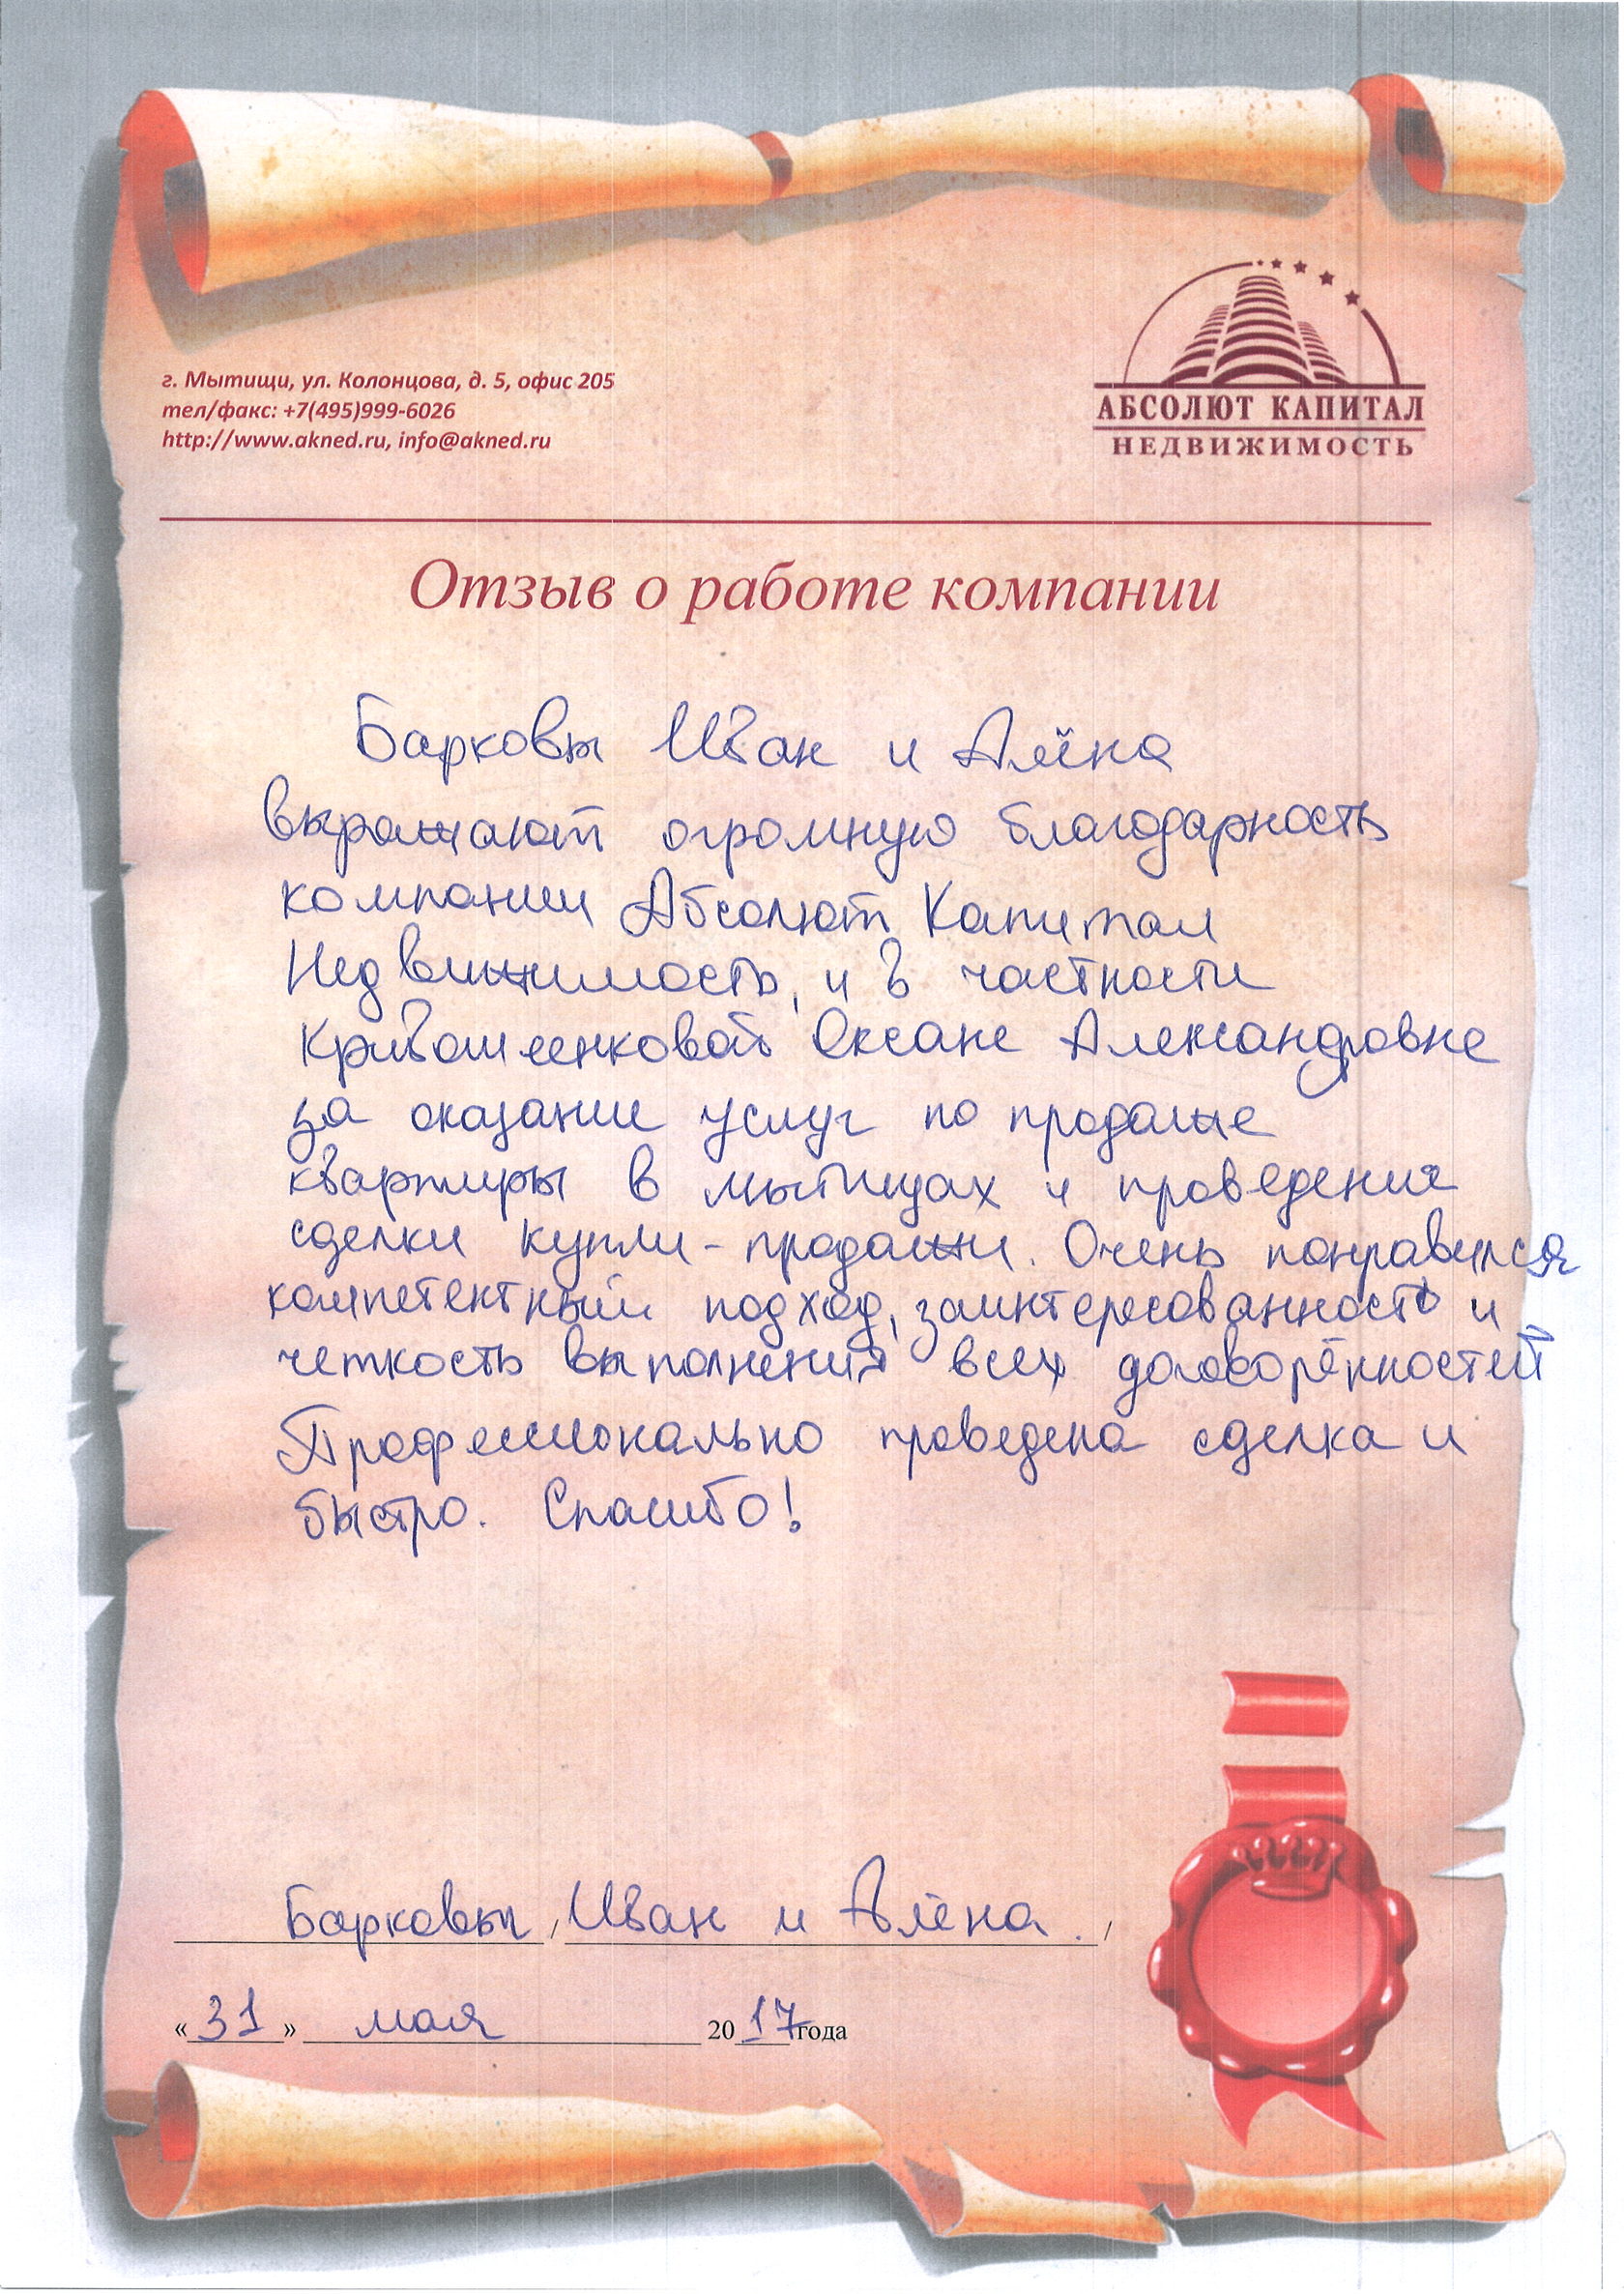 г. Мытищи, ул. Колонцова, д. 5, офис 205
тел/факс: +7(495)999-6026
http://www.akned.ru, info@akned.ru
АБСОЛЮТ КАПИТАЛ
НЕДВИЖИМОСТЬ
Отзыв о работе компании
Барковы Иван и Алёна
выражают огромную благодарность
компании Абсолют Капитал
Недвижимость, и в частности
Кривошеенковой Оксане Александровне
за оказание услуг по продаже
квартиры в мытищах и проведения
сделки купли-продажи. Очень понравился
компетентный подход, заинтересованность и
четкость выполнения всех договорённостей
Профессионально проведена сделка и
быстро. Спасибо!
Барковы / Иван и Алёна. /
«31» мая 2017года